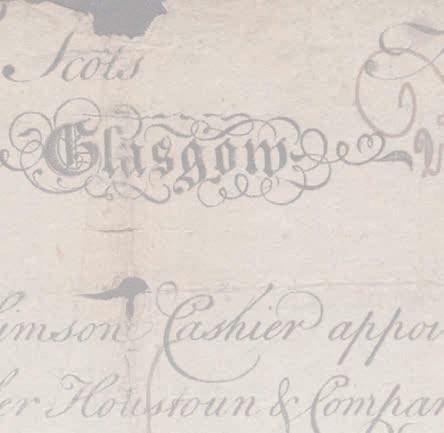 Scots
Glasgow
imson Cashier appoi
er Houstoun & Compan